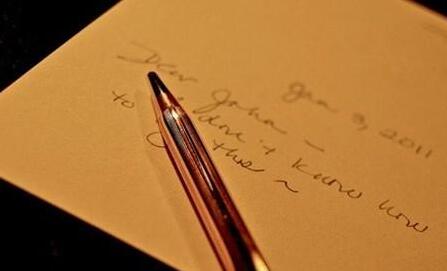 Jan 3, 2011
Dear John ~
I don't know how
to this ~